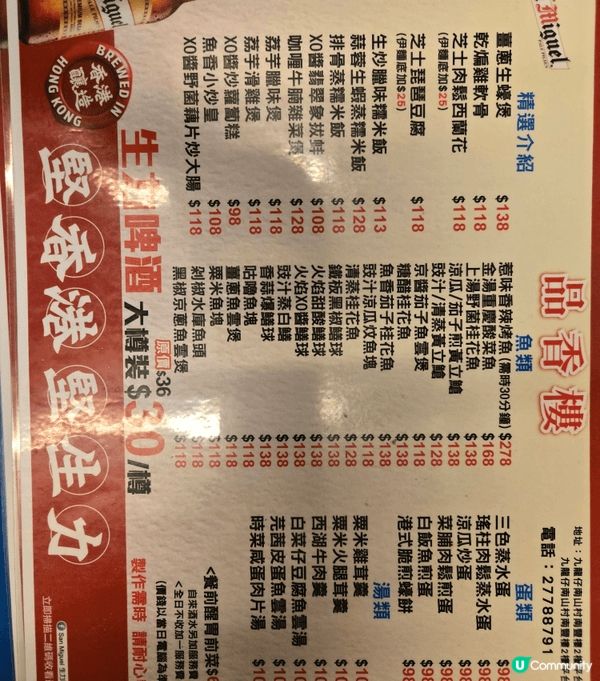 品香樓
地址：九龍仔南山村南豐樓2樓平台
九龍仔南山村南豐樓2樓
電話：27788791
精選介紹
薑蔥生蠔煲 $138
乾煸雞軟骨 $118
芝士肉鬆西蘭花 $118
(伊麵底加$25)
芝士琵琶豆腐 $118
(伊麵底加$25)
生炒臘味糯米飯 $113
蒜蓉生蝦蒸糯米飯 $128
排骨蒸糯米飯 $118
XO醬翡翠象拔蚌 $108
咖喱牛腩雜菜煲 $128
荔芋臘味煲 $118
荔芋滑雞煲 $118
XO醬炒蘿蔔糕 $98
魚香小炒皇 $108
XO醬野菌藕片炒大腸 $118
魚類
惹味香辣烤魚(需時30分鐘) $278
金湯重慶酸菜魚 $168
上湯野菌桂花魚 $138
涼瓜/茄子煎黃立鱠 $138
豉汁/清蒸黃立鱠 $128
京醬茄子魚雲煲 $118
糖醋桂花魚 $138
魚香茄子桂花魚 $138
豉汁涼瓜炆魚塊 $118
清蒸桂花魚 $128
鐵板黑椒鱔球 $138
火焰甜酸鱔球 $138
火焰XO醬鱔球 $138
豉汁蒸白鱔 $138
香蒜爆鱔球 $138
咕嚕魚塊 $118
薑蔥魚雲煲 $118
粟米魚塊 $118
剁椒水庫魚頭 $118
黑椒京蔥魚雲煲 $118
蛋類
三色蒸水蛋
瑤柱肉鬆蒸水蛋
涼瓜炒蛋
菜脯肉鬆煎蛋
白飯魚煎蛋
港式脆煎蠔餅
湯類
粟米雞茸羹
粟米火腿茸羹
西湖牛肉羹
白菜仔豆腐魚雲湯
芫茜皮蛋魚雲湯
時菜咸蛋肉片湯
<餐前醒胃前菜
自來酒水另加服務費
<全日不收加一服務費
(價錢以當日電腦為準
製作需時 請耐心
生力啤酒 大樽裝 $30/樽
原價$36
BREWED IN HONG KONG
香港釀造
堅香港堅生力
San Miguel 生力
立即掃描二維碼收看
Miguel
U Community